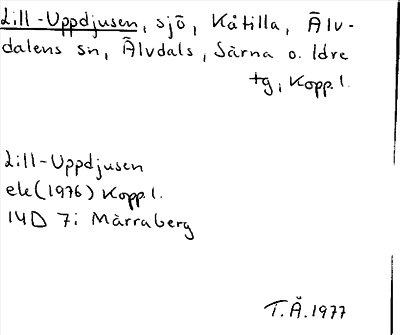 Lill-Uppdjusen, sjö, Kåtilla, Älv-
dalens sn, Älvdals, Särna o. Idre
tg, Kopp. l.
Lill-Uppdjusen
ek (1976) Kopp. l.
14D 7i Märraberg
T.Å. 1977